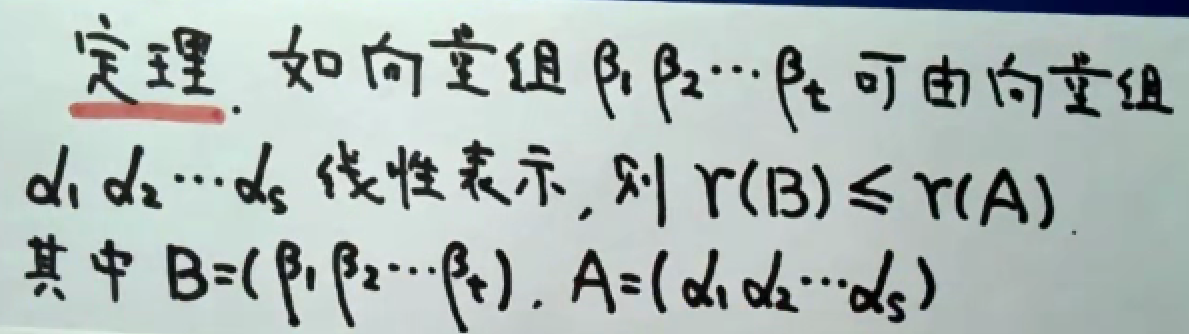 定理. 如向量组 β₁ β₂⋯βₜ 可由向量组
α₁ α₂⋯αₛ 线性表示, 则 r(B)≤r(A).
其中 B=(β₁ β₂⋯βₜ). A=(α₁ α₂⋯αₛ)